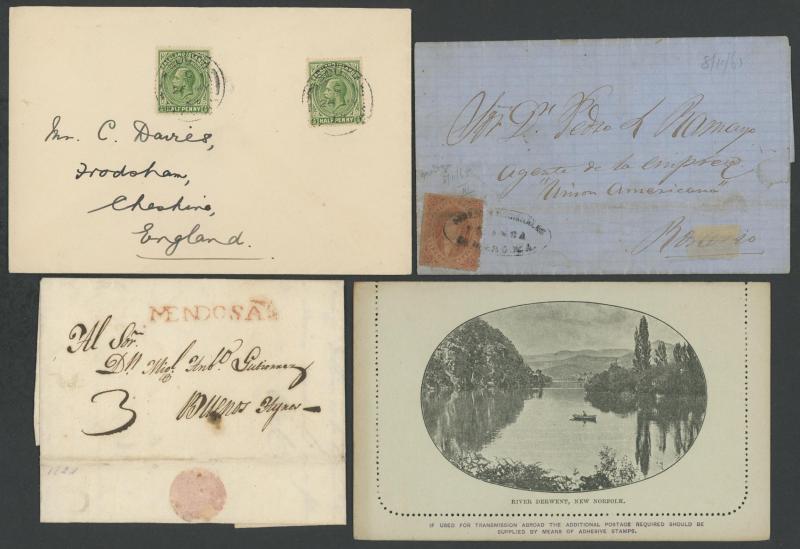 HALF PENNY
HALF PENNY
Mr. C. Davies,
Frodsham,
Cheshire,
England.
8/10/63
Sor. Dn. Pedro L Ramayo
Agente de la empreza
"Union Americana"
Rosario
MENDOSA
Al Sor.
Dn Migl. Anto. Gutierrez
3 Buenos Ayres
RIVER DERWENT, NEW NORFOLK.
IF USED FOR TRANSMISSION ABROAD THE ADDITIONAL POSTAGE REQUIRED SHOULD BE
SUPPLIED BY MEANS OF ADHESIVE STAMPS.